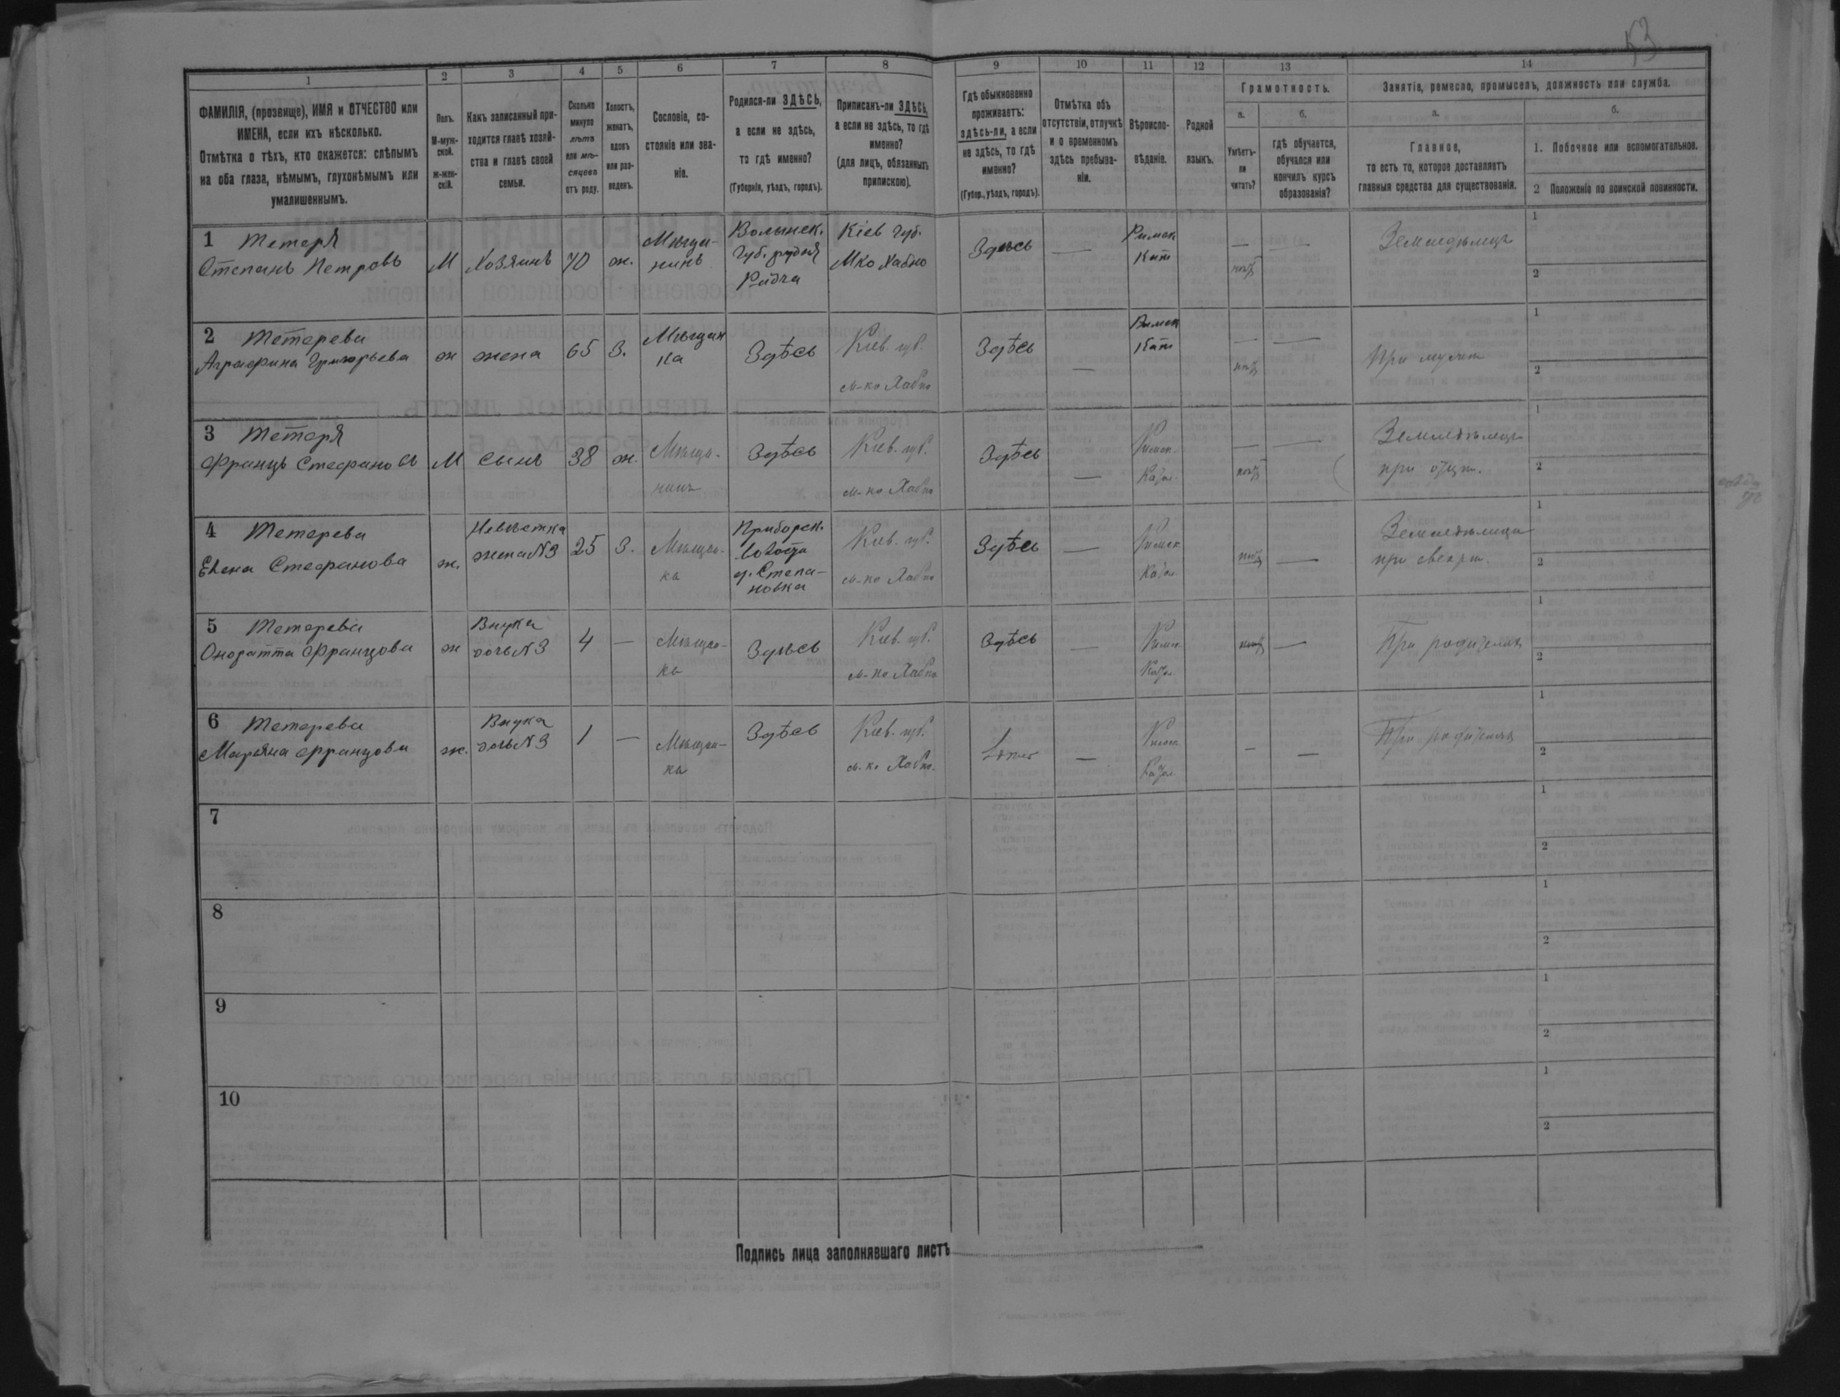 53
1 2 3 4 5 6 7 8 9 10 11 12 13 14
ФАМИЛІЯ, (прозвище), ИМЯ и ОТЧЕСТВО или
ИМЕНА, если ихъ нѣсколько.
Отмѣтка о тѣхъ, кто окажется: слѣпымъ
на оба глаза, нѣмымъ, глухонѣмымъ или
умалишеннымъ.
Полъ.
М-муж-
ской.
ж-жен-
скій.
Какъ записанный при-
ходится главѣ хозяй-
ства и главѣ своей
семьи.
Сколько
минуло
лѣтъ
или мѣ-
сяцевъ
отъ роду.
Холостъ,
женатъ,
вдовъ
или раз-
веденъ.
Сословіе, со-
стояніе или зва-
ніе.
Родился-ли ЗДѢСЬ,
а если не здѣсь,
то гдѣ именно?
(Губернія, уѣздъ, городъ).
Приписанъ-ли ЗДѢСЬ,
а если не здѣсь, то гдѣ
именно?
(для лицъ, обязанныхъ
припискою).
Гдѣ обыкновенно
проживаетъ:
здѣсь-ли, а если
не здѣсь, то гдѣ
именно?
(Губер., уѣздъ, городъ).
Отмѣтка объ
отсутствіи, отлучкѣ
и о временномъ
здѣсь пребыва-
ніи.
Вѣроиспо-
вѣданіе.
Родной
языкъ.
Грамотность.
а.
Умѣетъ-
ли
читать?
б.
гдѣ обучается,
обучался или
кончилъ курсъ
образованія?
Занятіе, ремесло, промыселъ, должность или служба.
а.
Главное,
то есть то, которое доставляетъ
главныя средства для существованія.
б.
1. Побочное или вспомогательное.
2 Положеніе по воинской повинности.
1 Тетеря
Степанъ Петровъ М Хозяинъ 70 ж.
Мѣща-
нинъ
Волынск.
Губ. рудня
Кіев Губ.
Мко Хабно
Здѣсь —
Римск
Кат
— —
Земледѣлецъ
1
2
2 Тетерева
Аграфина Григорьева ж жена 65 З.
Мѣщан
ка
Здѣсь
Кіев. губ.
м-ко Хабно
Здѣсь —
Римск
Кат
— —
При мужѣ
1
2
3 Тетеря
Францъ Стефановъ М сынъ 38 ж.
Мѣща-
нинъ
Здѣсь
Кіев. губ.
м-ко Хабно
Здѣсь —
Римск.
Катол.
— —
Земледѣлецъ
при отцѣ.
1
2
4 Тетерева
Елена Стефанова ж.
Невѣстка
жена N3
25 З.
Мѣщан-
ка
Приборск.
Волости
д. Степа-
новка
Кіев. губ.
м-ко Хабно
Здѣсь —
Римск
Катол
—
Земледѣлица
при свекрѣ.
1
2
5 Тетерева
Францова ж
Внука
дочь N3
4 —
Мѣщан-
ка
Здѣсь
Кіев. губ.
м-ко Хабно
Здѣсь —
Римск
Катол
—
При родителяхъ
1
2
6 Тетерева
Маряна Францова ж.
Внука
дочь N3
1 —
Мѣщан-
ка
Здѣсь
Кіев. губ.
м-ко Хабно.
—
Римск
Катол
— —
При родителяхъ
1
2
7
1
2
8
1
2
9
1
2
10
1
2
Подпись лица заполнявшаго листъ